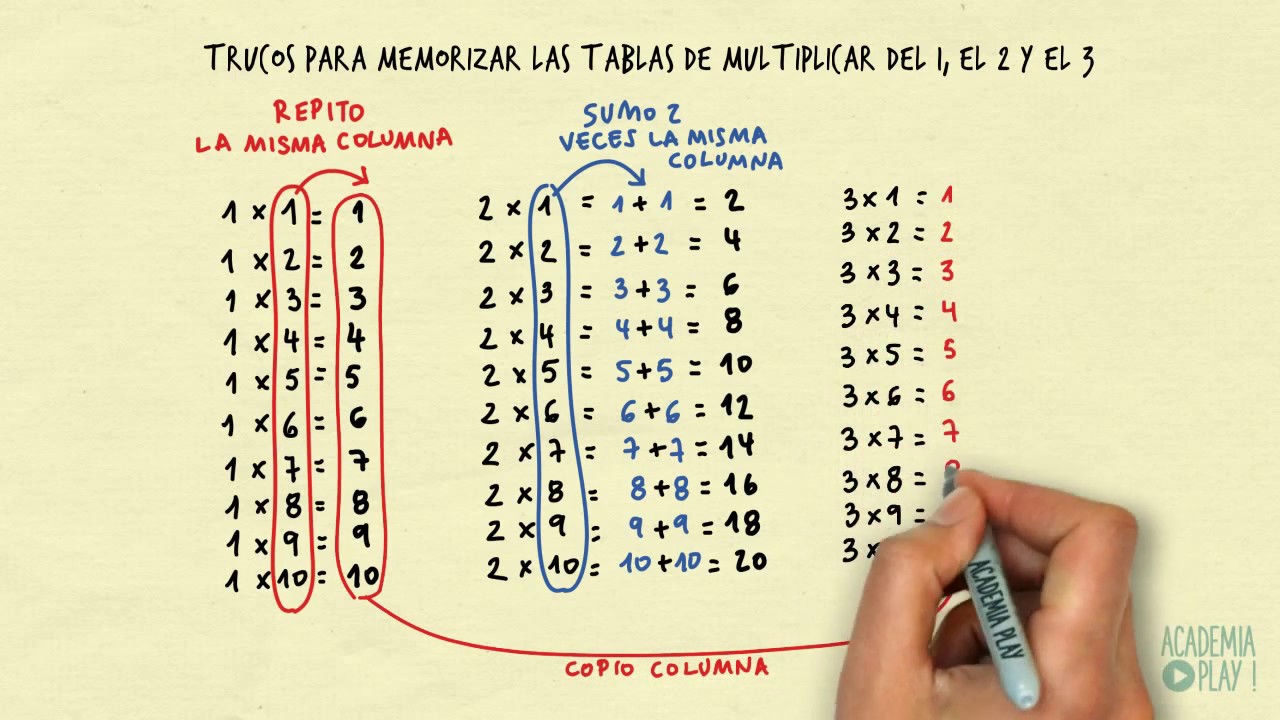 TRUCOS PARA MEMORIZAR LAS TABLAS DE MULTIPLICAR DEL 1, EL 2 Y EL 3
REPITO
LA MISMA COLUMNA
1 × 1 = 1
1 × 2 = 2
1 × 3 = 3
1 × 4 = 4
1 × 5 = 5
1 × 6 = 6
1 × 7 = 7
1 × 8 = 8
1 × 9 = 9
1 × 10 = 10
SUMO 2
VECES LA MISMA
COLUMNA
2 × 1 = 1 + 1 = 2
2 × 2 = 2 + 2 = 4
2 × 3 = 3 + 3 = 6
2 × 4 = 4 + 4 = 8
2 × 5 = 5 + 5 = 10
2 × 6 = 6 + 6 = 12
2 × 7 = 7 + 7 = 14
2 × 8 = 8 + 8 = 16
2 × 9 = 9 + 9 = 18
2 × 10 = 10 + 10 = 20
3 × 1 = 1
3 × 2 = 2
3 × 3 = 3
3 × 4 = 4
3 × 5 = 5
3 × 6 = 6
3 × 7 = 7
3 × 8 =
3 × 9 =
3 ×
COPIO COLUMNA
ACADEMIA PLAY
ACADEMIA
PLAY !